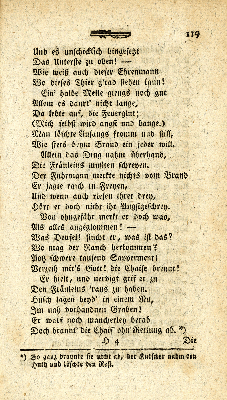 119
Und es unschicklich hingesetzt
Das Unterste zu oben! —
Wie weiß auch dieser Ehrenmann
Wo dieses Thier g'rad stehen kann!
Ein' halbe Meile giengs noch gut
Allein es daurt' nicht lange,
Da lebte auf, die Feuerglut;
(Mich selbst wird angst und bange.)
Man löschte Anfangs fromm und still,
Wie stets beym Brand ein jeder will.
Allein das Ding nahm überhand,
Die Fräuleins mußten schreyen.
Der Fuhrmann merkte nichts vom Brand
Er jagte rasch in Freyen,
Und wenn auch riesen ihrer drey,
Hört er doch nicht ihr Angstgeschrey.
Von ohngefähr merkt er doch was,
Als alles angeglommen! —
Was Deufel! flucht er, was ist das?
Wo mag der Rauch herkommen?
Botz schwere tausend Sapperment;
Vergeih mir's Gott! die Chaise brennt!
Er hielt, und nervigt griff er zu
Den Fräuleins 'raus zu haben.
Husch lagen beyd' in einem Nu,
Im nah vorhandnen Graben!
Er warf noch mancherley herab
Doch brannt' die Chais' ohn' Rettung ab. *)
H 4 Die
*) Go ganz brannte sie nicht ab, der Kutscher nahm den
Huth und löschte den Rest.